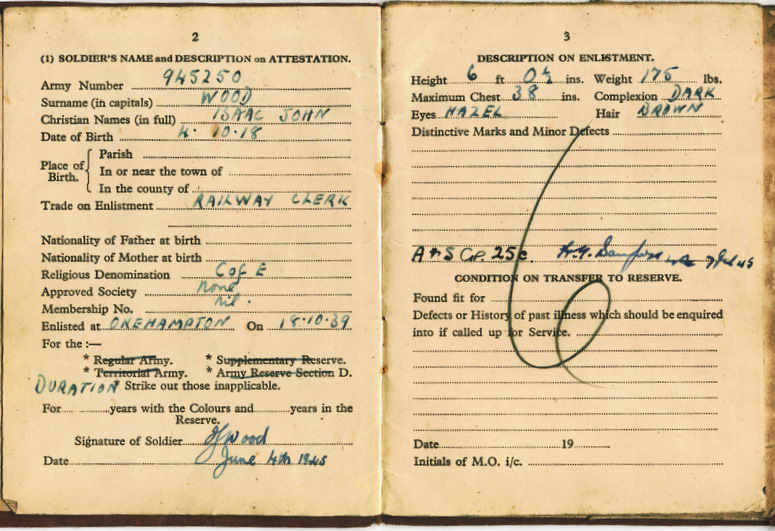 2
(1) SOLDIER'S NAME and DESCRIPTION on ATTESTATION.
Army Number 945250
Surname (in capitals) WOOD
Christian Names (in full) ISAAC JOHN
Date of Birth 4.10.18
Place of Birth. Parish
In or near the town of
In the county of
Trade on Enlistment RAILWAY CLERK
Nationality of Father at birth
Nationality of Mother at birth
Religious Denomination C of E
Approved Society None
Membership No. nil.
Enlisted at OKEHAMPTON On 18.10.39
For the :—
* Regular Army. * Supplementary Reserve.
* Territorial Army. * Army Reserve Section D.
DURATION Strike out those inapplicable.
For years with the Colours and years in the
Reserve.
Signature of Soldier Wood
Date June 4th 1945
3
DESCRIPTION ON ENLISTMENT.
Height 6 ft 0½ ins. Weight 175 lbs.
Maximum Chest 38 ins. Complexion DARK
Eyes HAZEL Hair BROWN
Distinctive Marks and Minor Defects
A & S Gp. 25c.
CONDITION ON TRANSFER TO RESERVE.
Found fit for
Defects or History of past illness which should be enquired
into if called up for Service.
Date 19
Initials of M.O. i/c.